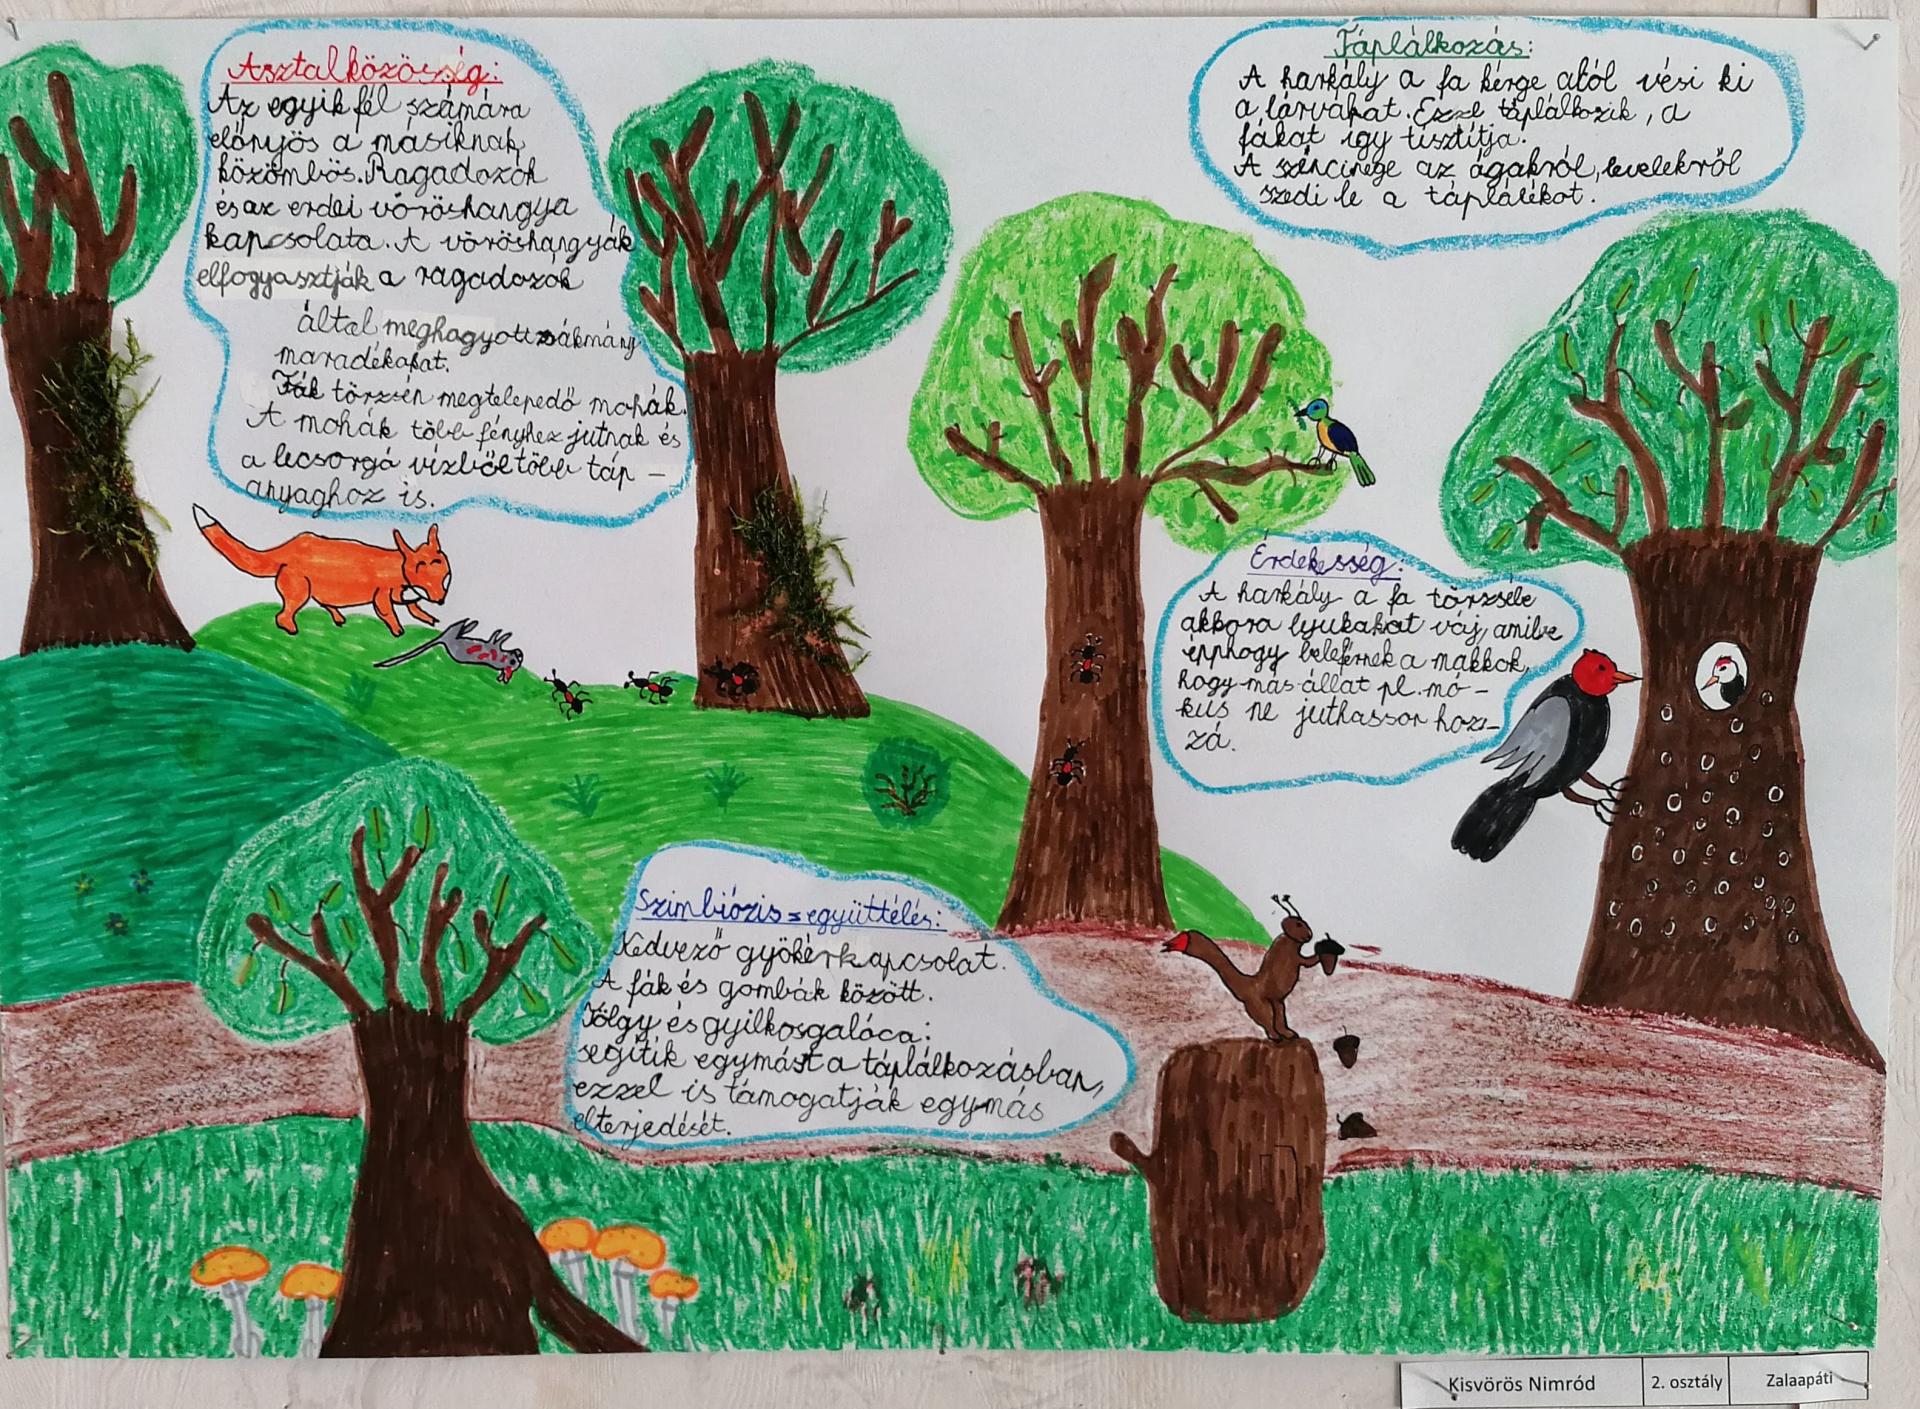 Asztalközösség:
Az egyik fél számára
előnyös a másiknak
közömbös. Ragadozók
és az erdei vöröshangya
kapcsolata. A vöröshangyák
elfogyasztják a ragadozók
által meghagyott zsákmány
maradékakat.
Fák törzsén megtelepedő mohák.
A mohák több fényhez jutnak és
a lecsorgó vízből több táp-
anyaghoz is.
Táplálkozás:
A harkály a fa kérge alól vési ki
a lárvákat. Ezzel táplálkozik, a
fákat így tisztítja.
A széncinege az ágakról, levelekről
szedi le a táplálékot.
Érdekesség:
A harkály a fa törzsébe
akkora lyukakat váj, amibe
épphogy beleférnek a makkok,
hogy más állat pl. mó-
kus ne juthasson hoz-
zá.
Szimbiózis = együttélés:
Kedvező gyökérkapcsolat.
A fák és gombák között.
Tölgy és gyilkosgalóca:
segítik egymást a táplálkozásban,
ezzel is támogatják egymás
elterjedését.
Kisvörös Nimród 2. osztály Zalaapáti